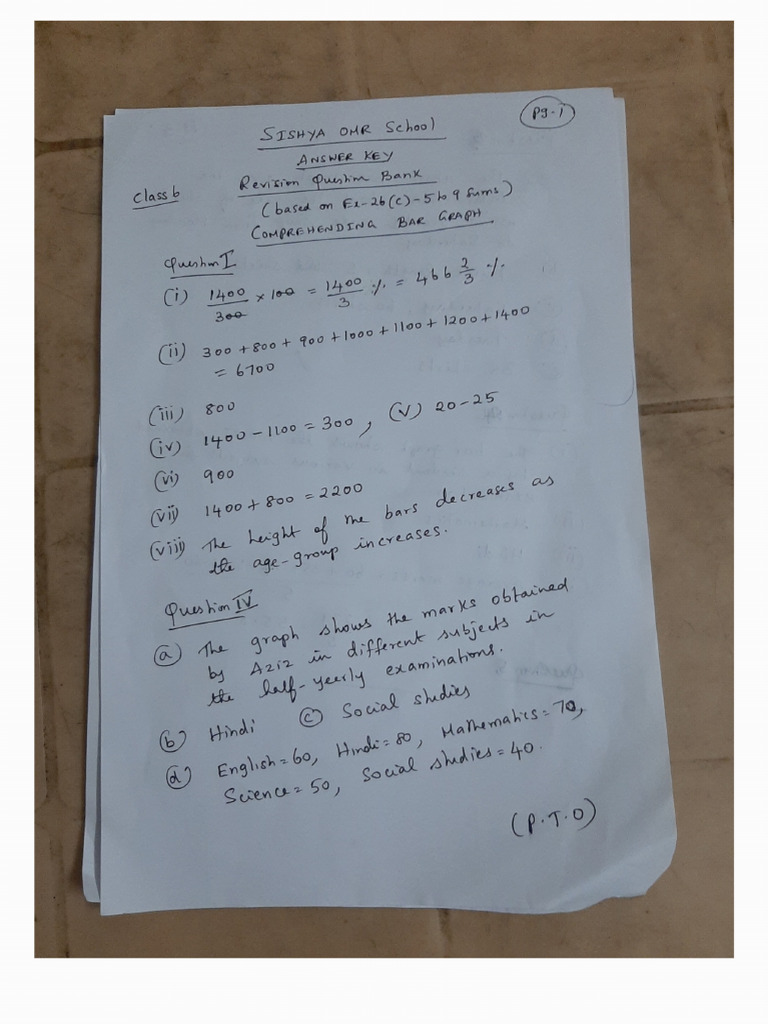 Pg-1
SISHYA OMR School
ANSWER KEY
Class 6
Revision Question Bank
(based on Ex-26(C)-5 to 9 sums)
COMPREHENDING BAR GRAPH
Question I
(i) 1400/300 × 100 = 1400/3 % = 466 2/3 %
(ii) 300 + 800 + 900 + 1000 + 1100 + 1200 + 1400
= 6700
(iii) 800
(iv) 1400 - 1100 = 300, (v) 20-25
(vi) 900
(vii) 1400 + 800 = 2200
(viii) The height of the bars decreases as
the age-group increases.
Question IV
(a) The graph shows the marks obtained
by Aziz in different subjects in
the half-yearly examinations.
(b) Hindi (c) Social studies
(d) English = 60, Hindi = 80, Mathematics = 70,
Science = 50, Social studies = 40.
(P.T.O)